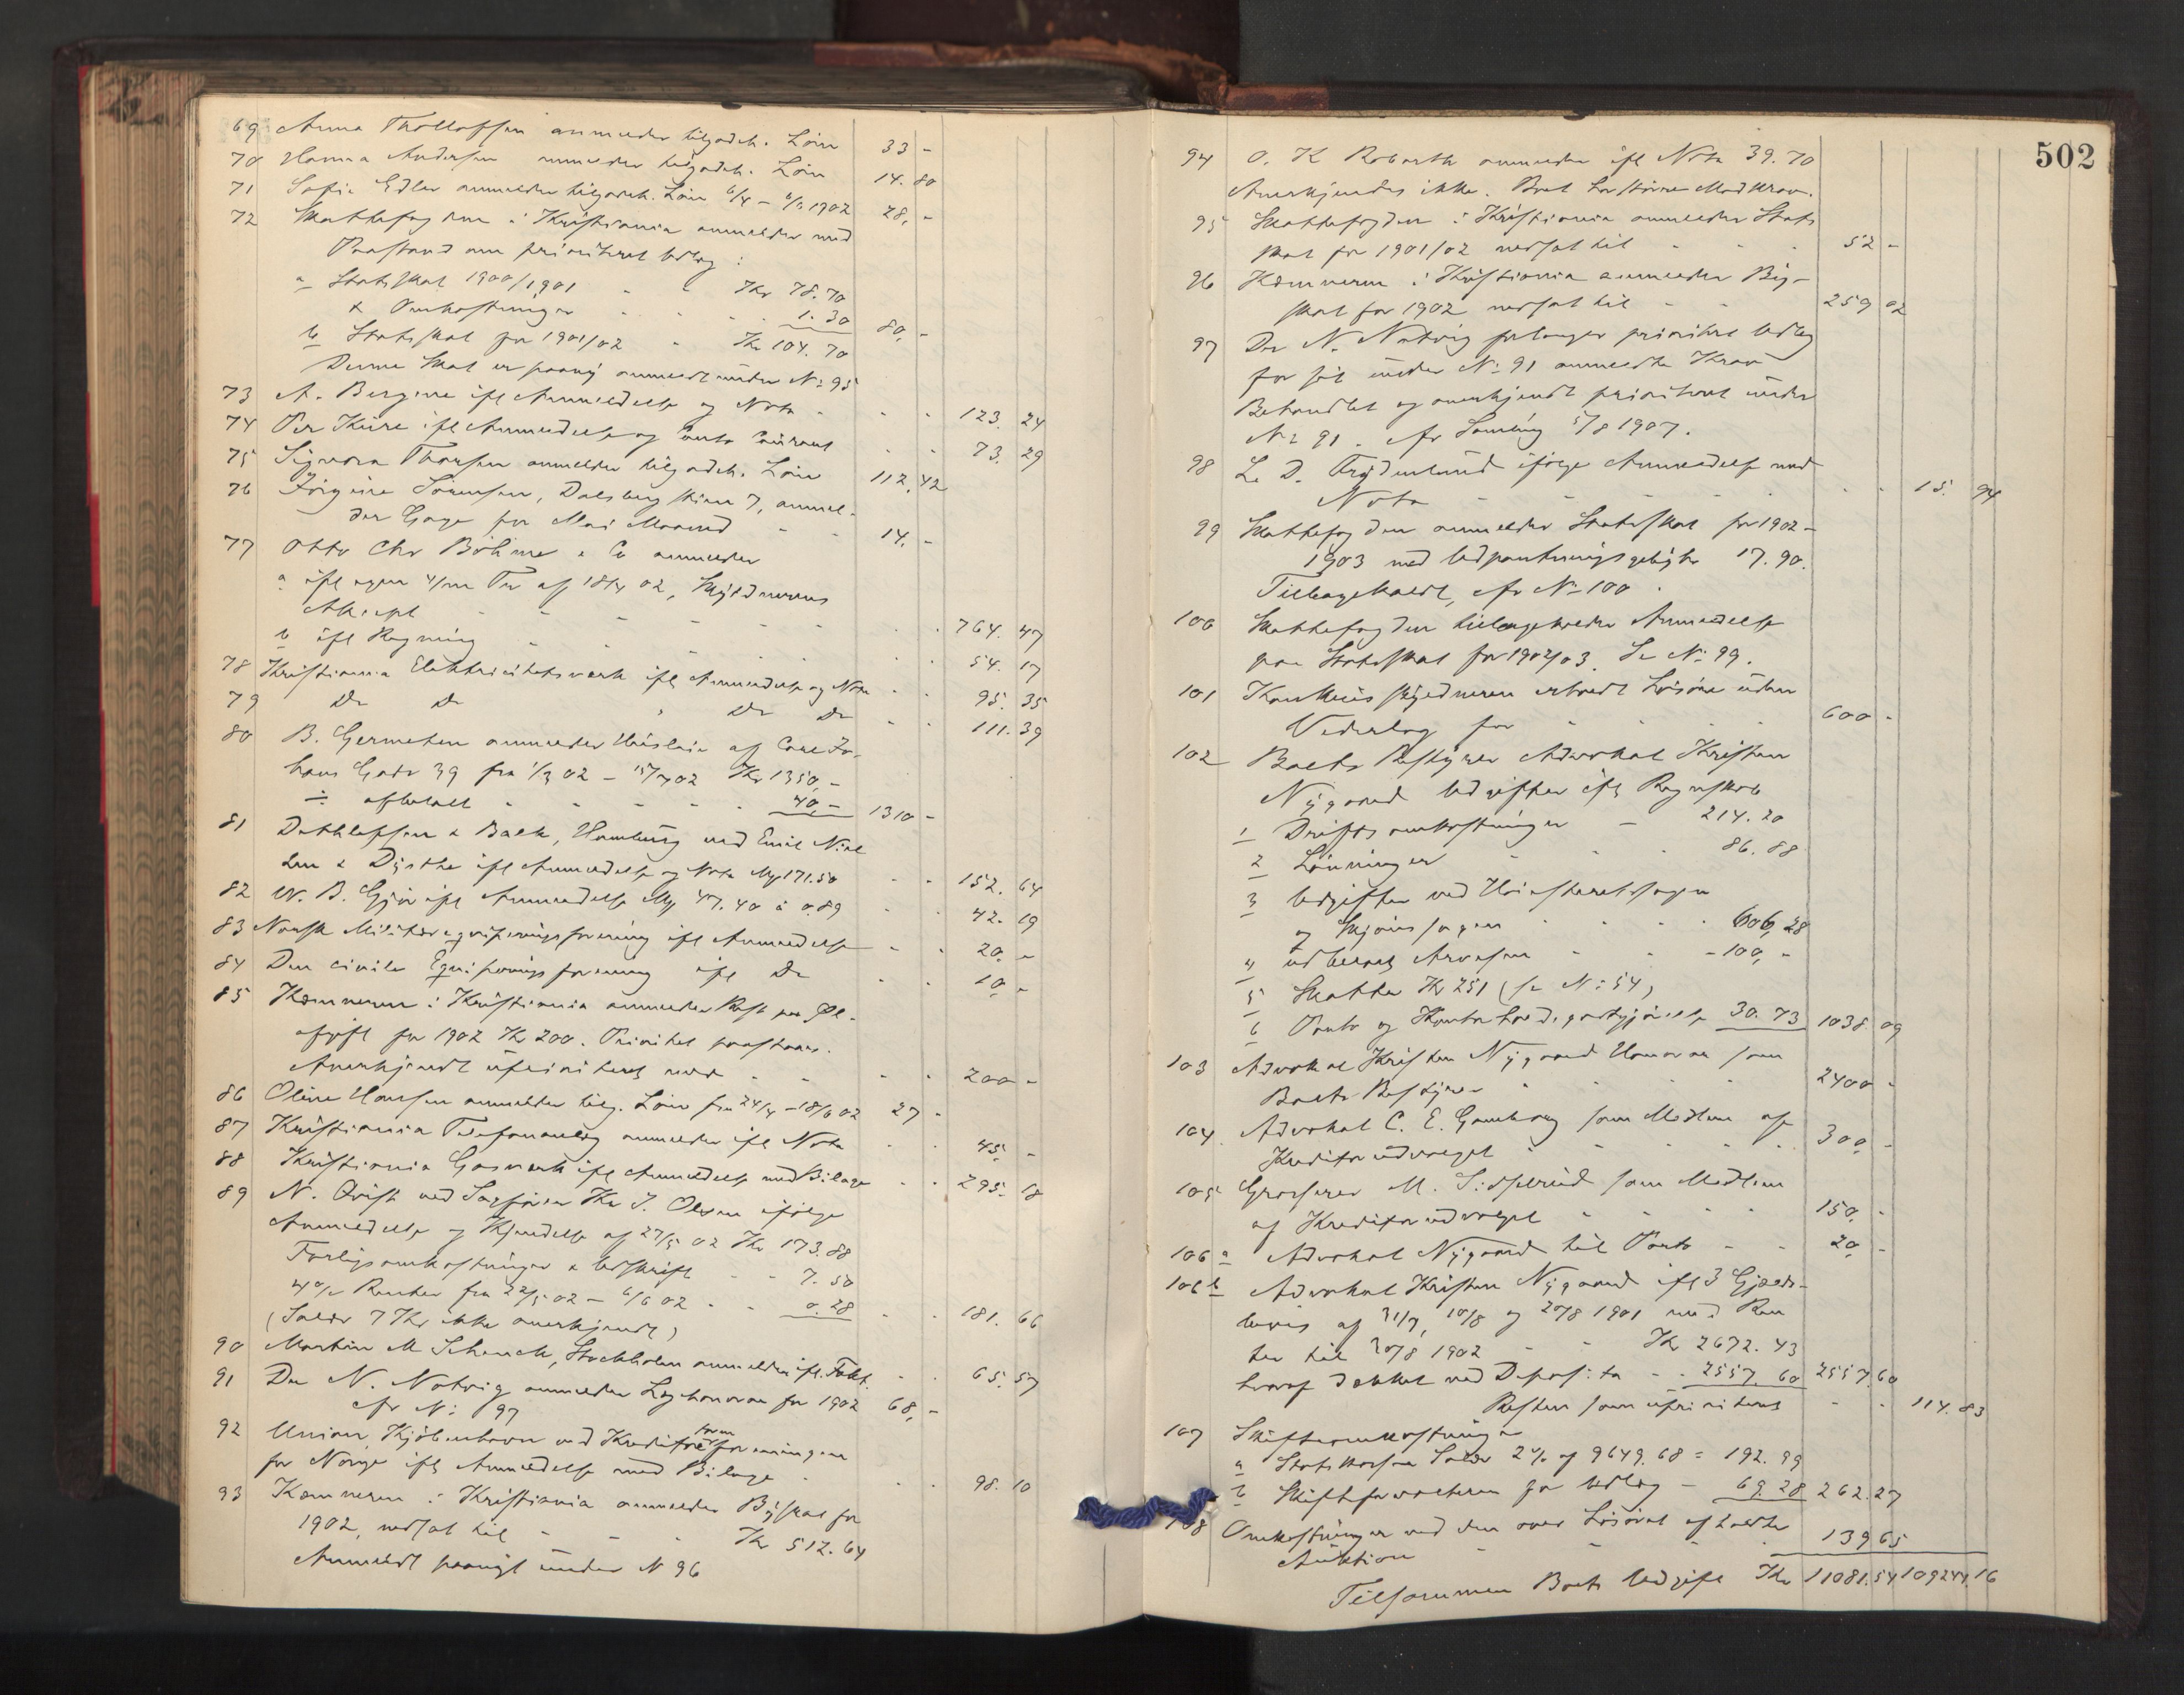 69 Anna Thollefsen anmelder tilgodeh. Løn 33 -
70 Hanna Andersen anmelder tilgodeh. Løn 14. 80
71 Sofie Edler anmelder tilgodeh. Løn 6/4 - 6/6 1902 28, -
72 Skattefogden i Kristiania anmelder med
Paastand om prioriteret Udlæg:
a Statsskat 1900/1901 - - Kr 78.70
& Omkostninger - - - 1.30 80, -
b Statsskat for 1901/02 - Kr 104.70
Denne Skat er paany anmeldt under No 95
73 A. Bergene ifl Anmeldelse og Nota - - - 123. 24
74 Per Kure ifl Anmeldelse og Conto Courant - - 73. 29
75 Signora Thorsen anmelder tilgodeh. Løn 112, 42
76 Jørgine Sørensen, Dalsbergstien 7, anmel-
der Gage for Mai Maaned - - 14. -
77 Otto Chr Böhme & Co anmelder
a ifl egen 4/mn Tr af 18/4 02, Skyldnerens
Aksept - - - - - - 764. 47
b ifl Regning - - - - - 54. 17
78 Kristiania Elektricitetsverk ifl Anmeldelse og Nota - - 95. 35
79 Do Do , Do Do - - 111. 39
80 B. Germeten anmelder Husleie af Carl Jo-
hans Gade 39 fra 1/3 02 - 15/7 02 Kr 1350, -
÷ afbetalt - - - - - 40, - 1310 -
81 Dethlefsen & Balk, Hamburg ved Emil Niel
sen & Dysthe ifl Anmeldelse og Nota Mk 171.50 - - 152. 64
82 W. B. Gjør ifl Anmeldelse Mk 47.40 à 0.89 - - 42. 19
83 Norsk Militær equiperingsforening ifl Anmeldelse - - 20. -
84 Den civile Equiperingsforening ifl Do - - 10, -
85 Kæmneren i Kristiania anmelder Rest paa Øl-
afgift for 1902 Kr 200. Prioritet paastaaes.
Anerkjendt uprioriteret med - - - - 200 -
86 Oline Hansen anmelder tilg. Løn fra 24/4 - 18/6 02 27 -
87 Kristiania Telefonanlæg anmelder ifl Nota - - 45. -
88 Kristiania Gasverk ifl Anmeldelse med Bilage - - 295. 18
89 N. Qvist ved Sagfører Kr J. Olsen ifølge
Anmeldelse og Kjendelse af 27/5 02 Kr 173.88
Forligsomkostninger & Udskrift - - 7.50
4% Renter fra 22/5 02 - 6/6 02 - - 0.28 - - 181. 66
(Salær 7 Kr ikke anerkjendt)
90 Martin M Schenck, Stockholm anmelder ifl. Fakt. - - 65. 57
91 Dr N. Natvig anmelder Lægehonorar for 1902 68, -
cfr No 97
92 Union, Kjøbenhavn ved Kreditorforeningen
for Norge ifl Anmeldelse med Bilage - - - 98. 10
93 Kæmneren i Kristiania anmelder Byskat for
1902, nedsat til - - - Kr 512.64
Anmeldt paanyt under N 96
502
94 O. K Robarth anmelder ifl Nota 39.70
Anerkjendes ikke. Boet har større Modkrav.
95 Skattefogden i Kristiania anmelder Stats
skat for 1901/02 nedsat til - - - 52 -
96 Kæmneren i Kristiania anmelder By-
skat for 1902 nedsat til - - 259 02
97 Dr N. Natvig forlanger prioritert Udlæg
for sit under No 91 anmeldte Krav
Behandlet og anerkjendt prioriteret under
No 91. cfr Samling 5/8 1907.
98 L. D. Frydenlund ifølge Anmeldelse med
Nota - - - - - - 15. 94
99 Skattefogden anmelder Statsskat for 1902-
1903 med Udpantningsgebyhr 17.90.
Tilbagekaldt, cfr No 100.
100 Skattefogden tilbagekalder Anmeldelse
paa Statsskat for 1902/03. Se No 99.
101 Konkursskyldneren erholdt Løsøre uden
Vederlag for - - - - 600 -
102 Boets Bestyrer Advokat Kristen
Nygaard Udgifter ifl Regnskab
1 Driftsomkostninger - 214.20
2 Lønninger - - - 86.88
3 Udgifter ved Høiesteretssagen
og Skjønssagen - - - 606,28
4 - - -100, -
5 Skatter Kr 251 (se No 54)
6 Porto og Kontorholdsgodtgjørelse 30.73 1038 09
103 Advokat Kristen Nygaard Honorar som
Boets Bestyrer - - - - 2400 -
104 Advokat C. E. Gamborg som Medlem af
Kreditorudvalget - - - - 300, -
105 Grosserer M. Sidselrud som Medlem
af Kreditorudvalget - - - 150, -
106 a Advokat Nygaard til Porto - - 20, -
106 b Advokat Kristen Nygaard ifl 3 Gjælds-
bevis af 31/7, 10/8 og 20/8 1901 med Ren
ter til 20/8 1902 - - Kr 2672.43
hvoraf dækket ved Deposita - - 2557.60 2557,60
Resten som uprioriteret - - 114.83
107 Skifteomkostninger
a Statskassen Salær 2% af 9649.68 = 192.99
b Skifteforvalteren for Udlæg - 69.28 262.27
108 Omkostninger ved den over Løsøret afholdte
Auktion - - - - 139 65
Tilsammen Boets Udgift Kr 11081.54 109244.16